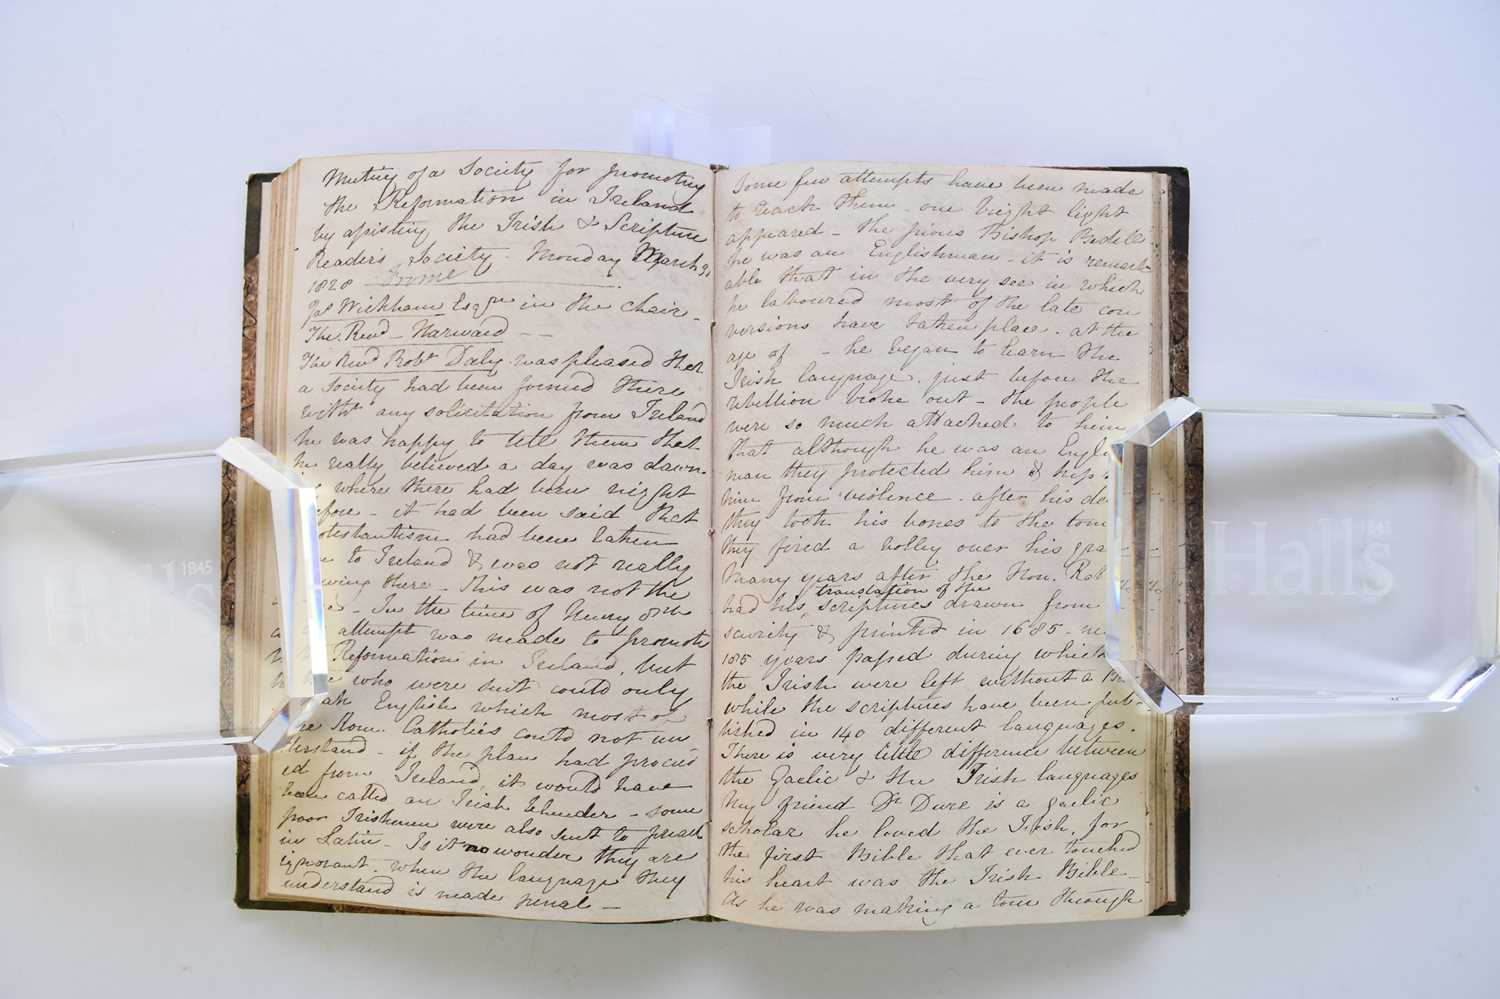 Meeting of a Society for promoting
the Reformation in Ireland
by assisting the Irish & Scripture
Readers Society. Monday March 31
1828 Frome
Jas Wickham Esqre in the chair -
The Revd - Harward -
The Revd Robt Daly was pleased that
a Society had been formed there
witht any solicitation from Ireland
he was happy to tell them that
he really believed a day was dawn-
where there had been night
before - it had been said that
Protestantism had been taken
to Ireland & was not really
there - this was not the
- In the time of Henry 8th
attempt was made to promote
Reformation in Ireland, but
who were sent could only
English which most of
Rom. Catholics could not un
derstand - if the plan had proceed
ed from Ireland, it would have
been called an Irish blunder - some
poor Irishmen were also sent to preach
in Latin - Is it no wonder they are
ignorant, when the language they
understand is made penal -
Some few attempts have been made
to reach them - one bright light
appeared - the pious Bishop Bedell
he was an Englishman - it is remark-
able that in the very see in which
he laboured most of the late con
versions have taken place. at the
age of - he began to learn the
Irish language. just before the
rebellion broke out - the people
were so much attached to him
that although he was an Engli
man they protected him & his
him from violence. after his de
they took his bones to the tom
they fired a volley over his gra
Many years after the Hon. Rob
had his translation of the scriptures drawn from
security & printed in 1685 -
185 years passed during which
the Irish were left without a Bi
while the scriptures have been pub-
lished in 140 different languages.
There is very little difference between
the Gaelic & the Irish languages
My friend Dr Dure is a gaelic
scholar he loved the Irish, for
the first Bible that ever touched
his heart was the Irish Bible -
As he was making a tour through
Halls 1845
Halls 1845